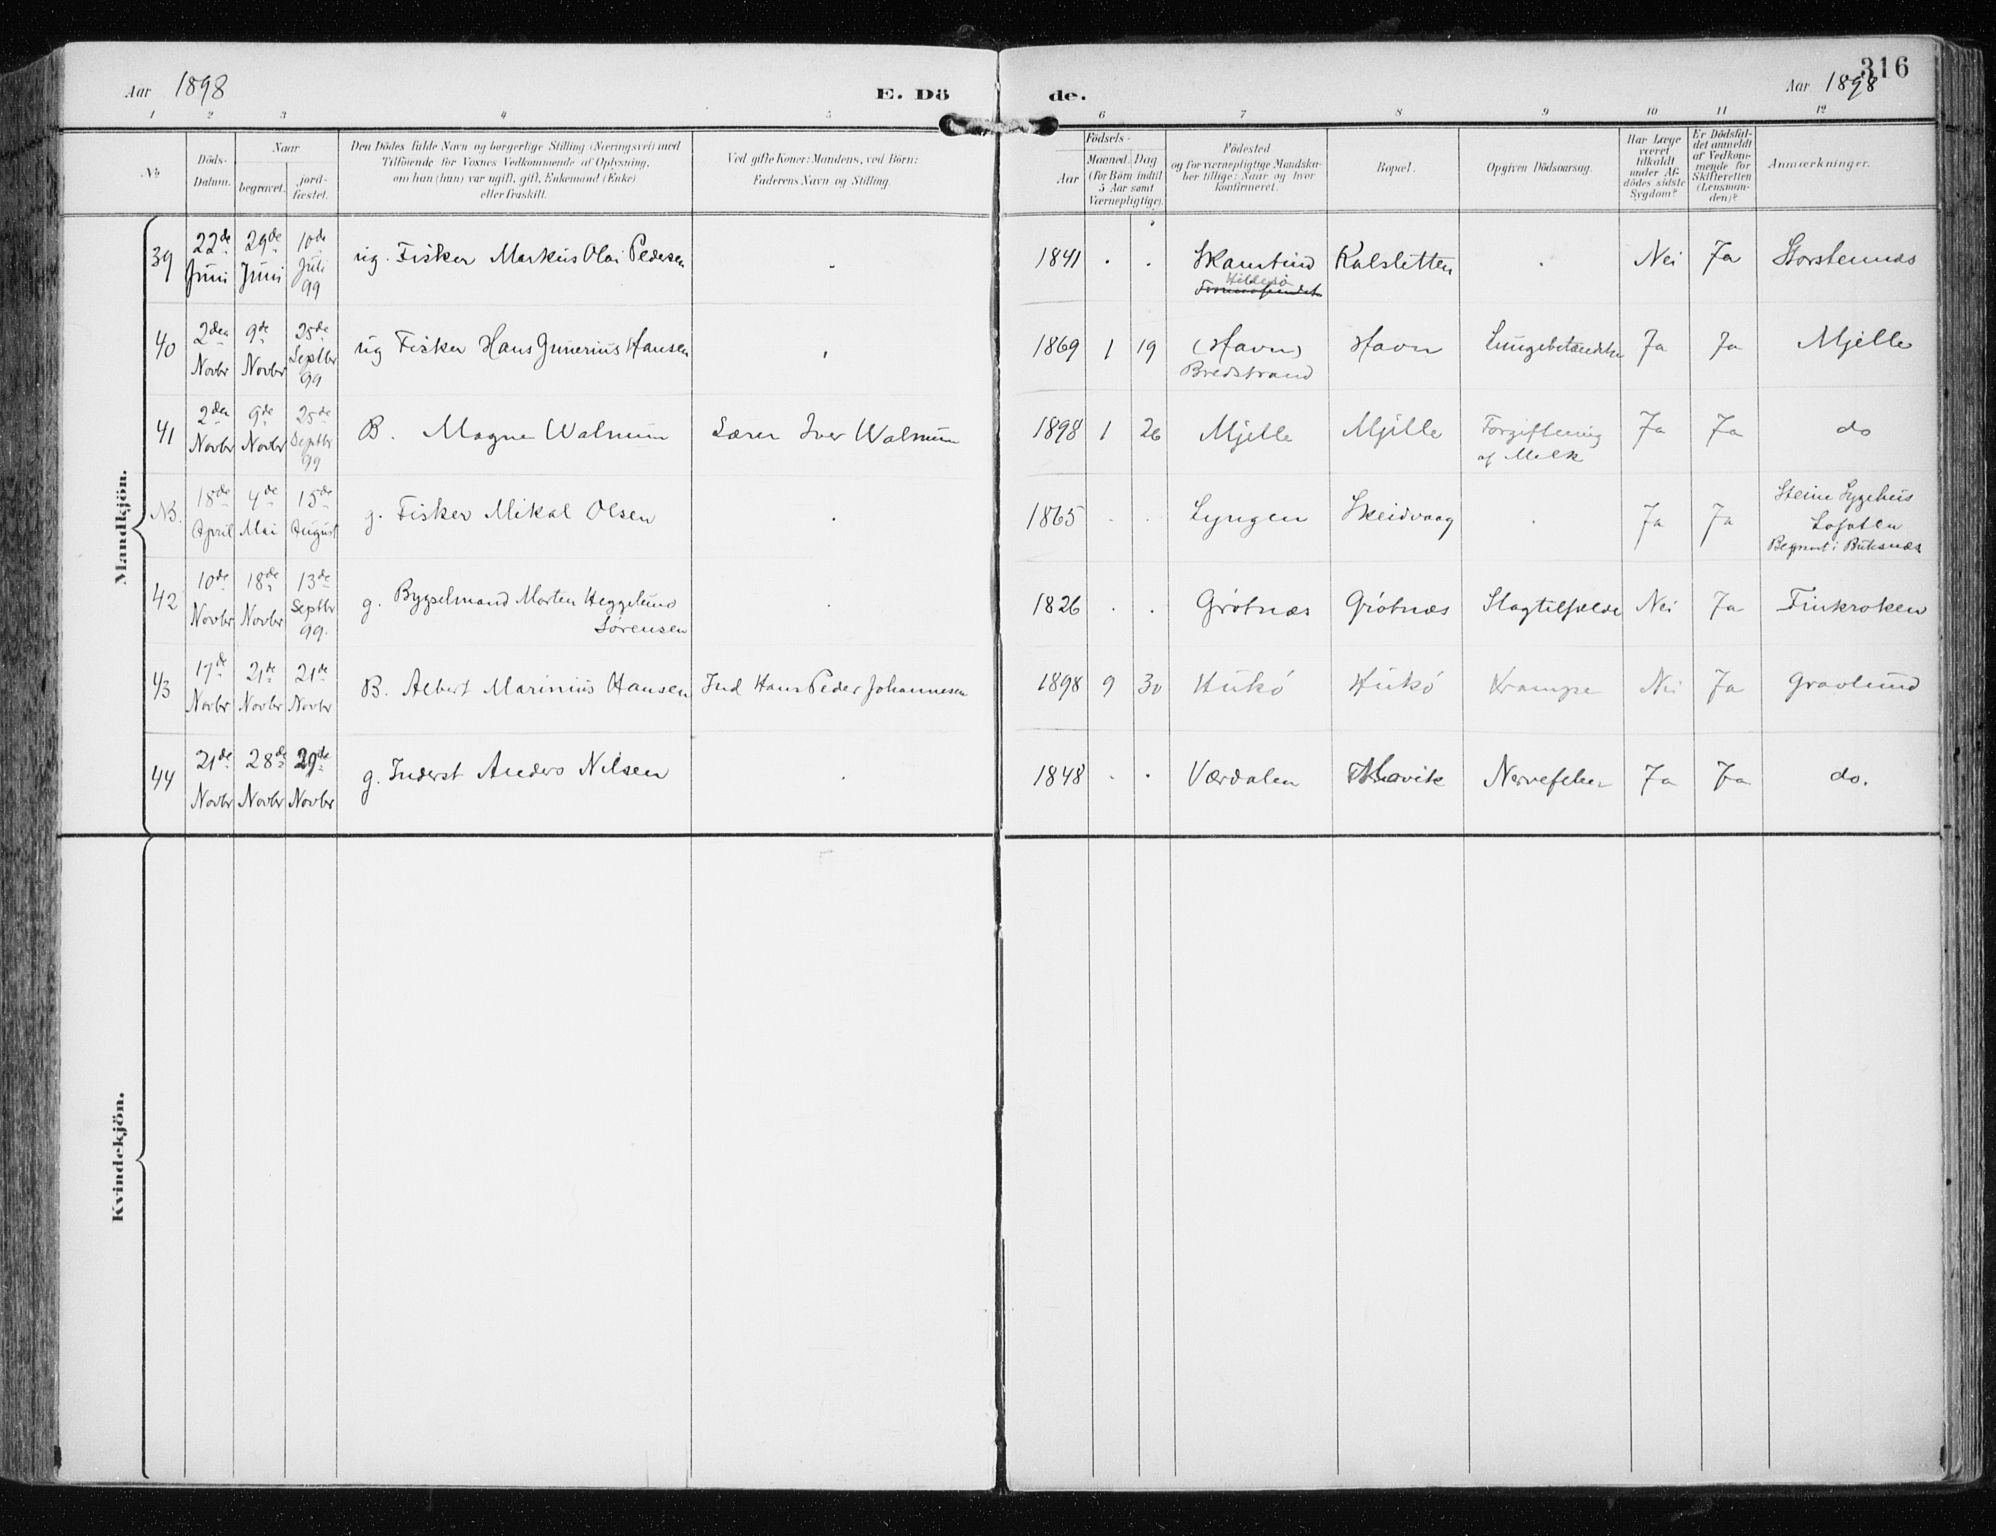 Aar 1898
E. Dö
de.
316
Aar 1898
1 2 3 4 5 6 7 8 9 10 11 12
No
Döds-
Datum.
Naar
begravet.
jord-
fæstet.
Den Dödes fulde Navn og borgerlige Stilling (Næringsvei) med
Tilföiende for Voxnes Vedkommende af Oplysning,
om han (hun) var ugift, gift, Enkemand (Enke)
eller fraskilt.
Ved gifte Koner: Mandens, ved Börn:
Faderens Navn og Stilling.
Födsels-
Aar
Maaned. Dag
(for Börn indtil
5 Aar samt
Værnepligtige).
Födested
og for værnepligtige Mandska-
ber tillige: Naar og hvor
konfirmeret.
Bopæl.
Opgiven Dödsaarsag.
Har Læge
været
tilkaldt
under Af-
dödes sidste
Sygdom?
Er Dödsfal-
det anmeldt
af Vedkom-
mende for
Skifteretten
(Lensman-
den)?
Anmærkninger.
Mandkjön.
39 22de Juni 29de Juni 10de Juli 99 ug. Fisker Markus Olai Pedersen 1841 Skamtind Hillesö Kalsletten Nei Ja Storstennæs
40 2den Novbr 9de Novbr 25de Septbr 99 ug Fisker Hans Junerius Hansen 1869 1 19 (Havn) Bredstrand Havn Lungebetændelse Ja Ja Mjelle
41 2den Novbr 9de Novbr 25de Septbr 99 B. Magne Walnum Lærer Iver Walnum 1898 1 26 Mjelle Mjelle Forgiftning af Melk Ja Ja do
NB. 18de April 4de Mai 15de August g. Fisker Mikal Olsen 1865 Lyngen Skeidvaag Ja Ja Steine Sygehus Lofoten Begravet i Buksnæs
42 10de Novbr 18de Novbr 13de Septbr 99. g. Bygselmand Morten Heggelund Sørensen 1826 Grøtnæs Grøtnæs Slagtilfælde Nei Ja Finkroken
43 17de Novbr 21de Novbr 21de Novbr B. Albert Marinius Hansen Ind Hans Peder Johannesen 1898 9 30 Kukø Kukø Krampe Nei Ja Gravlund
44 21de Novbr 28de Novbr 29de Novbr g. Inderst Anders Nilsen 1848 Værdalen Nervefeber Ja Ja do.
Kvindekjön.